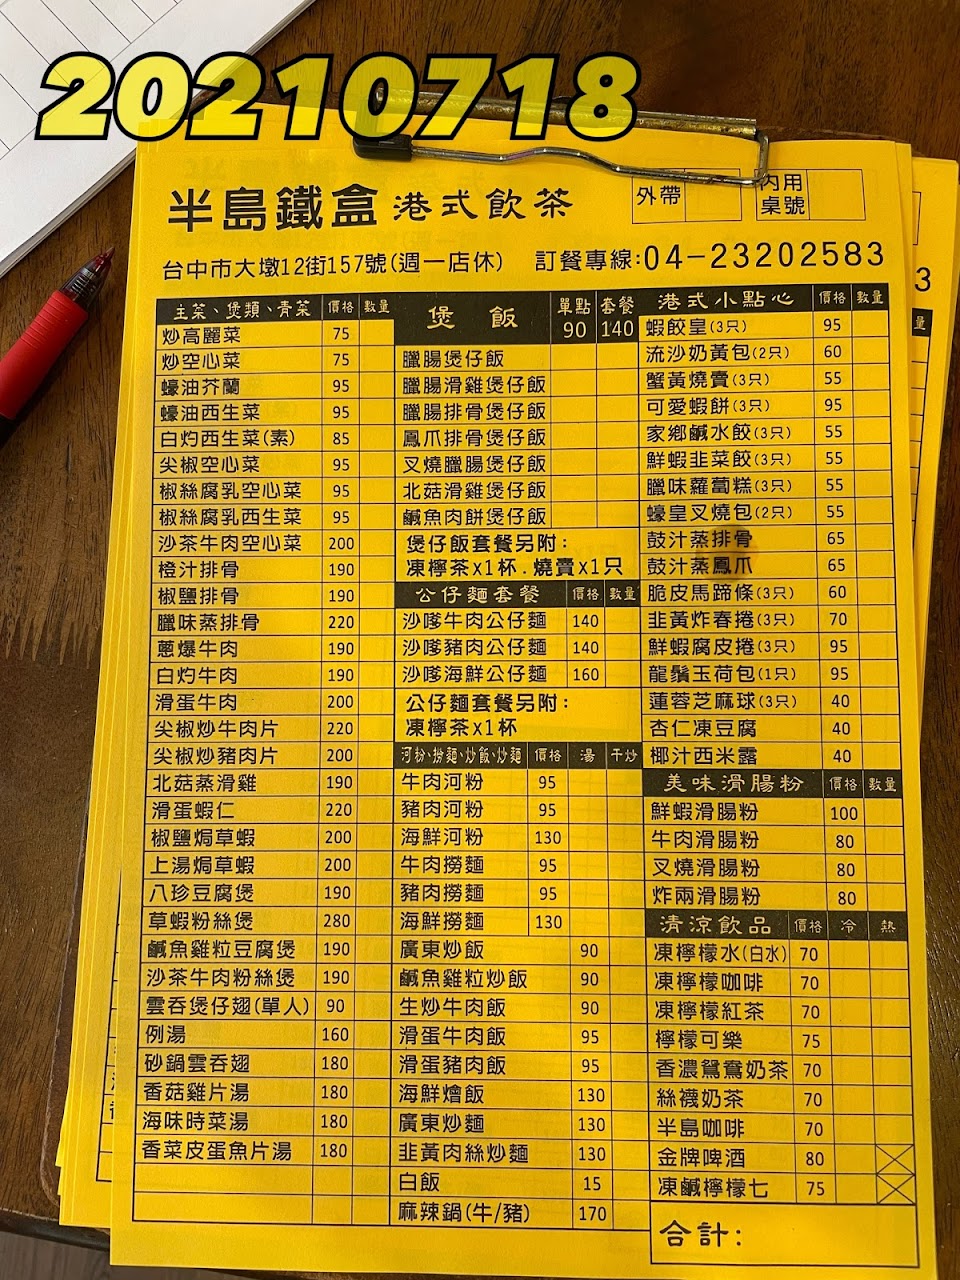 20210718
半島鐵盒 港式飲茶
外帶
內用桌號
台中市大墩12街157號(週一店休) 訂餐專線:04-23202583
主菜、煲類、青菜 價格 數量
炒高麗菜 75
炒空心菜 75
蠔油芥蘭 95
蠔油西生菜 95
白灼西生菜(素) 85
尖椒空心菜 95
椒絲腐乳空心菜 95
椒絲腐乳西生菜 95
沙茶牛肉空心菜 200
橙汁排骨 190
椒鹽排骨 190
臘味蒸排骨 220
蔥爆牛肉 190
白灼牛肉 190
滑蛋牛肉 200
尖椒炒牛肉片 220
尖椒炒豬肉片 200
北菇蒸滑雞 190
滑蛋蝦仁 220
椒鹽焗草蝦 200
上湯焗草蝦 200
八珍豆腐煲 190
草蝦粉絲煲 280
鹹魚雞粒豆腐煲 190
沙茶牛肉粉絲煲 190
雲吞煲仔翅(單人) 90
例湯 160
砂鍋雲吞翅 180
香菇雞片湯 180
海味時菜湯 180
香菜皮蛋魚片湯 180
煲飯 單點 90 套餐 140
臘腸煲仔飯
臘腸滑雞煲仔飯
臘腸排骨煲仔飯
鳳爪排骨煲仔飯
叉燒臘腸煲仔飯
北菇滑雞煲仔飯
鹹魚肉餅煲仔飯
煲仔飯套餐另附:
凍檸茶x1杯.燒賣x1只
公仔麵套餐 價格 數量
沙嗲牛肉公仔麵 140
沙嗲豬肉公仔麵 140
沙嗲海鮮公仔麵 160
公仔麵套餐另附:
凍檸茶x1杯
河粉、撈麵、炒飯、炒麵 價格 湯 干炒
牛肉河粉 95
豬肉河粉 95
海鮮河粉 130
牛肉撈麵 95
豬肉撈麵 95
海鮮撈麵 130
廣東炒飯 90
鹹魚雞粒炒飯 90
生炒牛肉飯 90
滑蛋牛肉飯 95
滑蛋豬肉飯 95
海鮮燴飯 130
廣東炒麵 130
韭黃肉絲炒麵 130
白飯 15
麻辣鍋(牛/豬) 170
港式小點心 價格 數量
蝦餃皇(3只) 95
流沙奶黃包(2只) 60
蟹黃燒賣(3只) 55
可愛蝦餅(3只) 95
家鄉鹹水餃(3只) 55
鮮蝦韭菜餃(3只) 55
臘味蘿蔔糕(3只) 55
蠔皇叉燒包(2只) 55
鼓汁蒸排骨 65
鼓汁蒸鳳爪 65
脆皮馬蹄條(3只) 60
韭黃炸春捲(3只) 70
鮮蝦腐皮捲(3只) 95
龍鬚玉荷包(1只) 95
蓮蓉芝麻球(3只) 40
杏仁凍豆腐 40
椰汁西米露 40
美味滑腸粉 價格 數量
鮮蝦滑腸粉 100
牛肉滑腸粉 80
叉燒滑腸粉 80
炸兩滑腸粉 80
清涼飲品 價格 冷 熱
凍檸檬水(白水) 70
凍檸檬咖啡 70
凍檸檬紅茶 70
檸檬可樂 75
香濃鴛鴦奶茶 70
絲襪奶茶 70
半島咖啡 70
金牌啤酒 80
凍鹹檸檬七 75
合計:
3
量